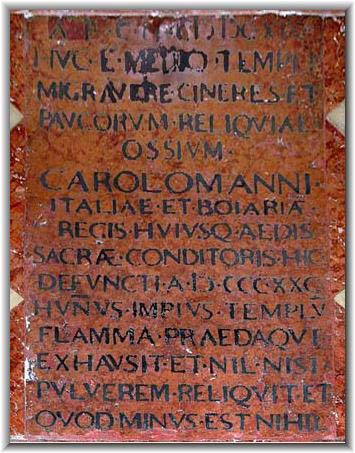 HVC · E · MEDIO · TEMPLI
MIGRAVERE CINERES · ET
PAVCORVM · RELIQVIAE
OSSIVM ·
CAROLOMANNI ·
ITALIAE · ET · BOIARIÆ ·
REGIS · HVIVSQ · AEDIS
SACRÆ · CONDITORIS · HIC
DEFUNCTI · A · D · CCC · XXC
HUÑUS · IMPIUS · TEMPLV̄
FLAMMA · PRAEDAQVE
EXHAVSIT · ET · NIL · NISI
PVLVEREM · RELIQVIT · ET
QVOD · MINUS · EST · NIHIL